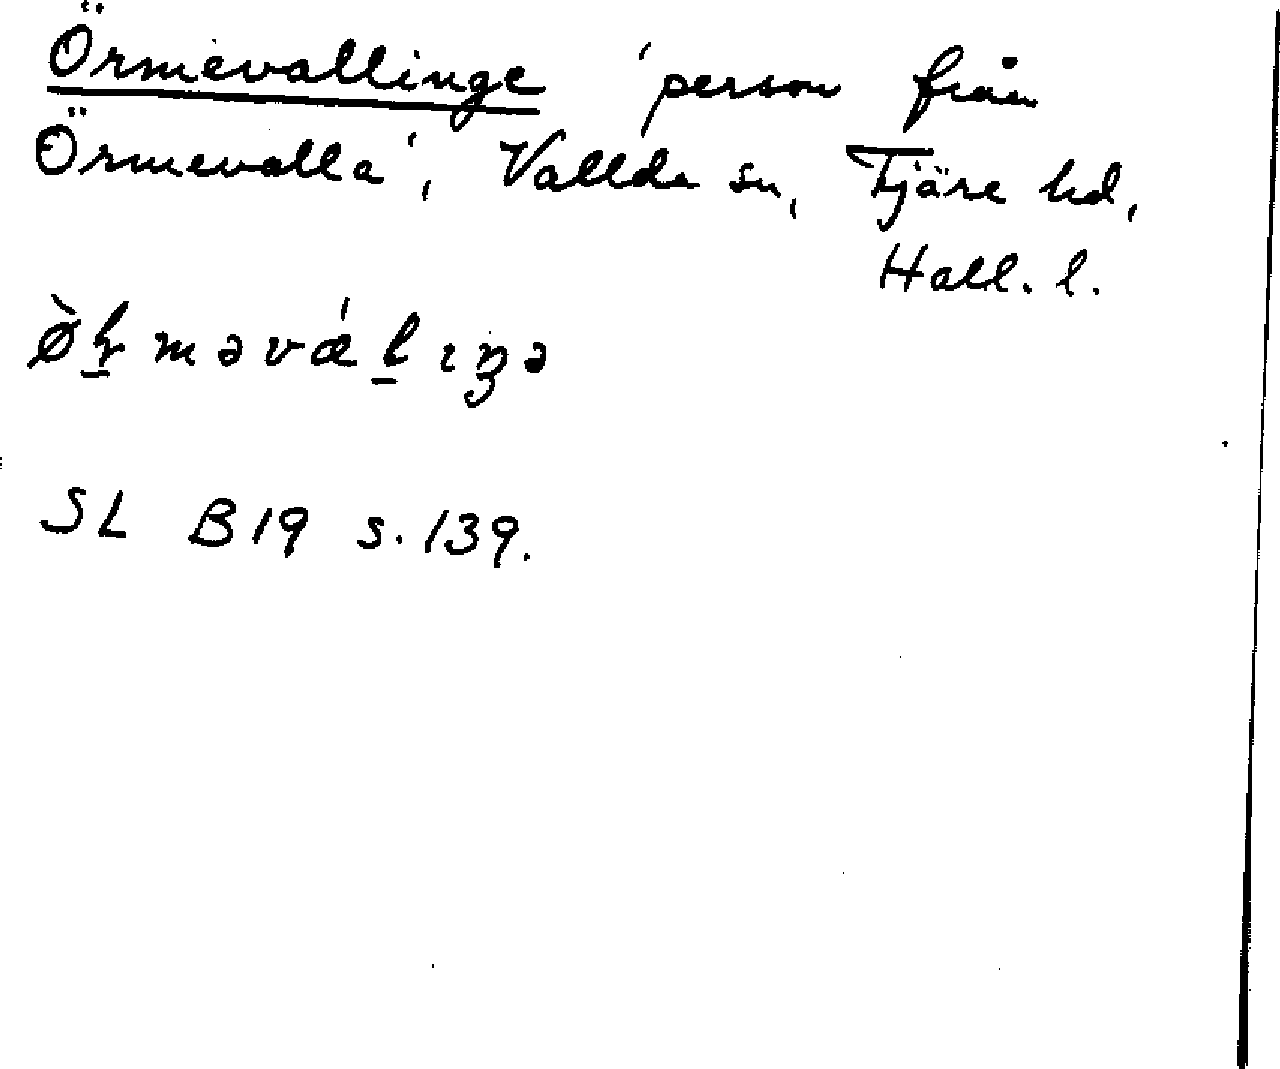 Örmevallinge 'person från
Örmevalla', Vallda sn, Tjäre hd,
Hall. l.
SL B19 s. 139.